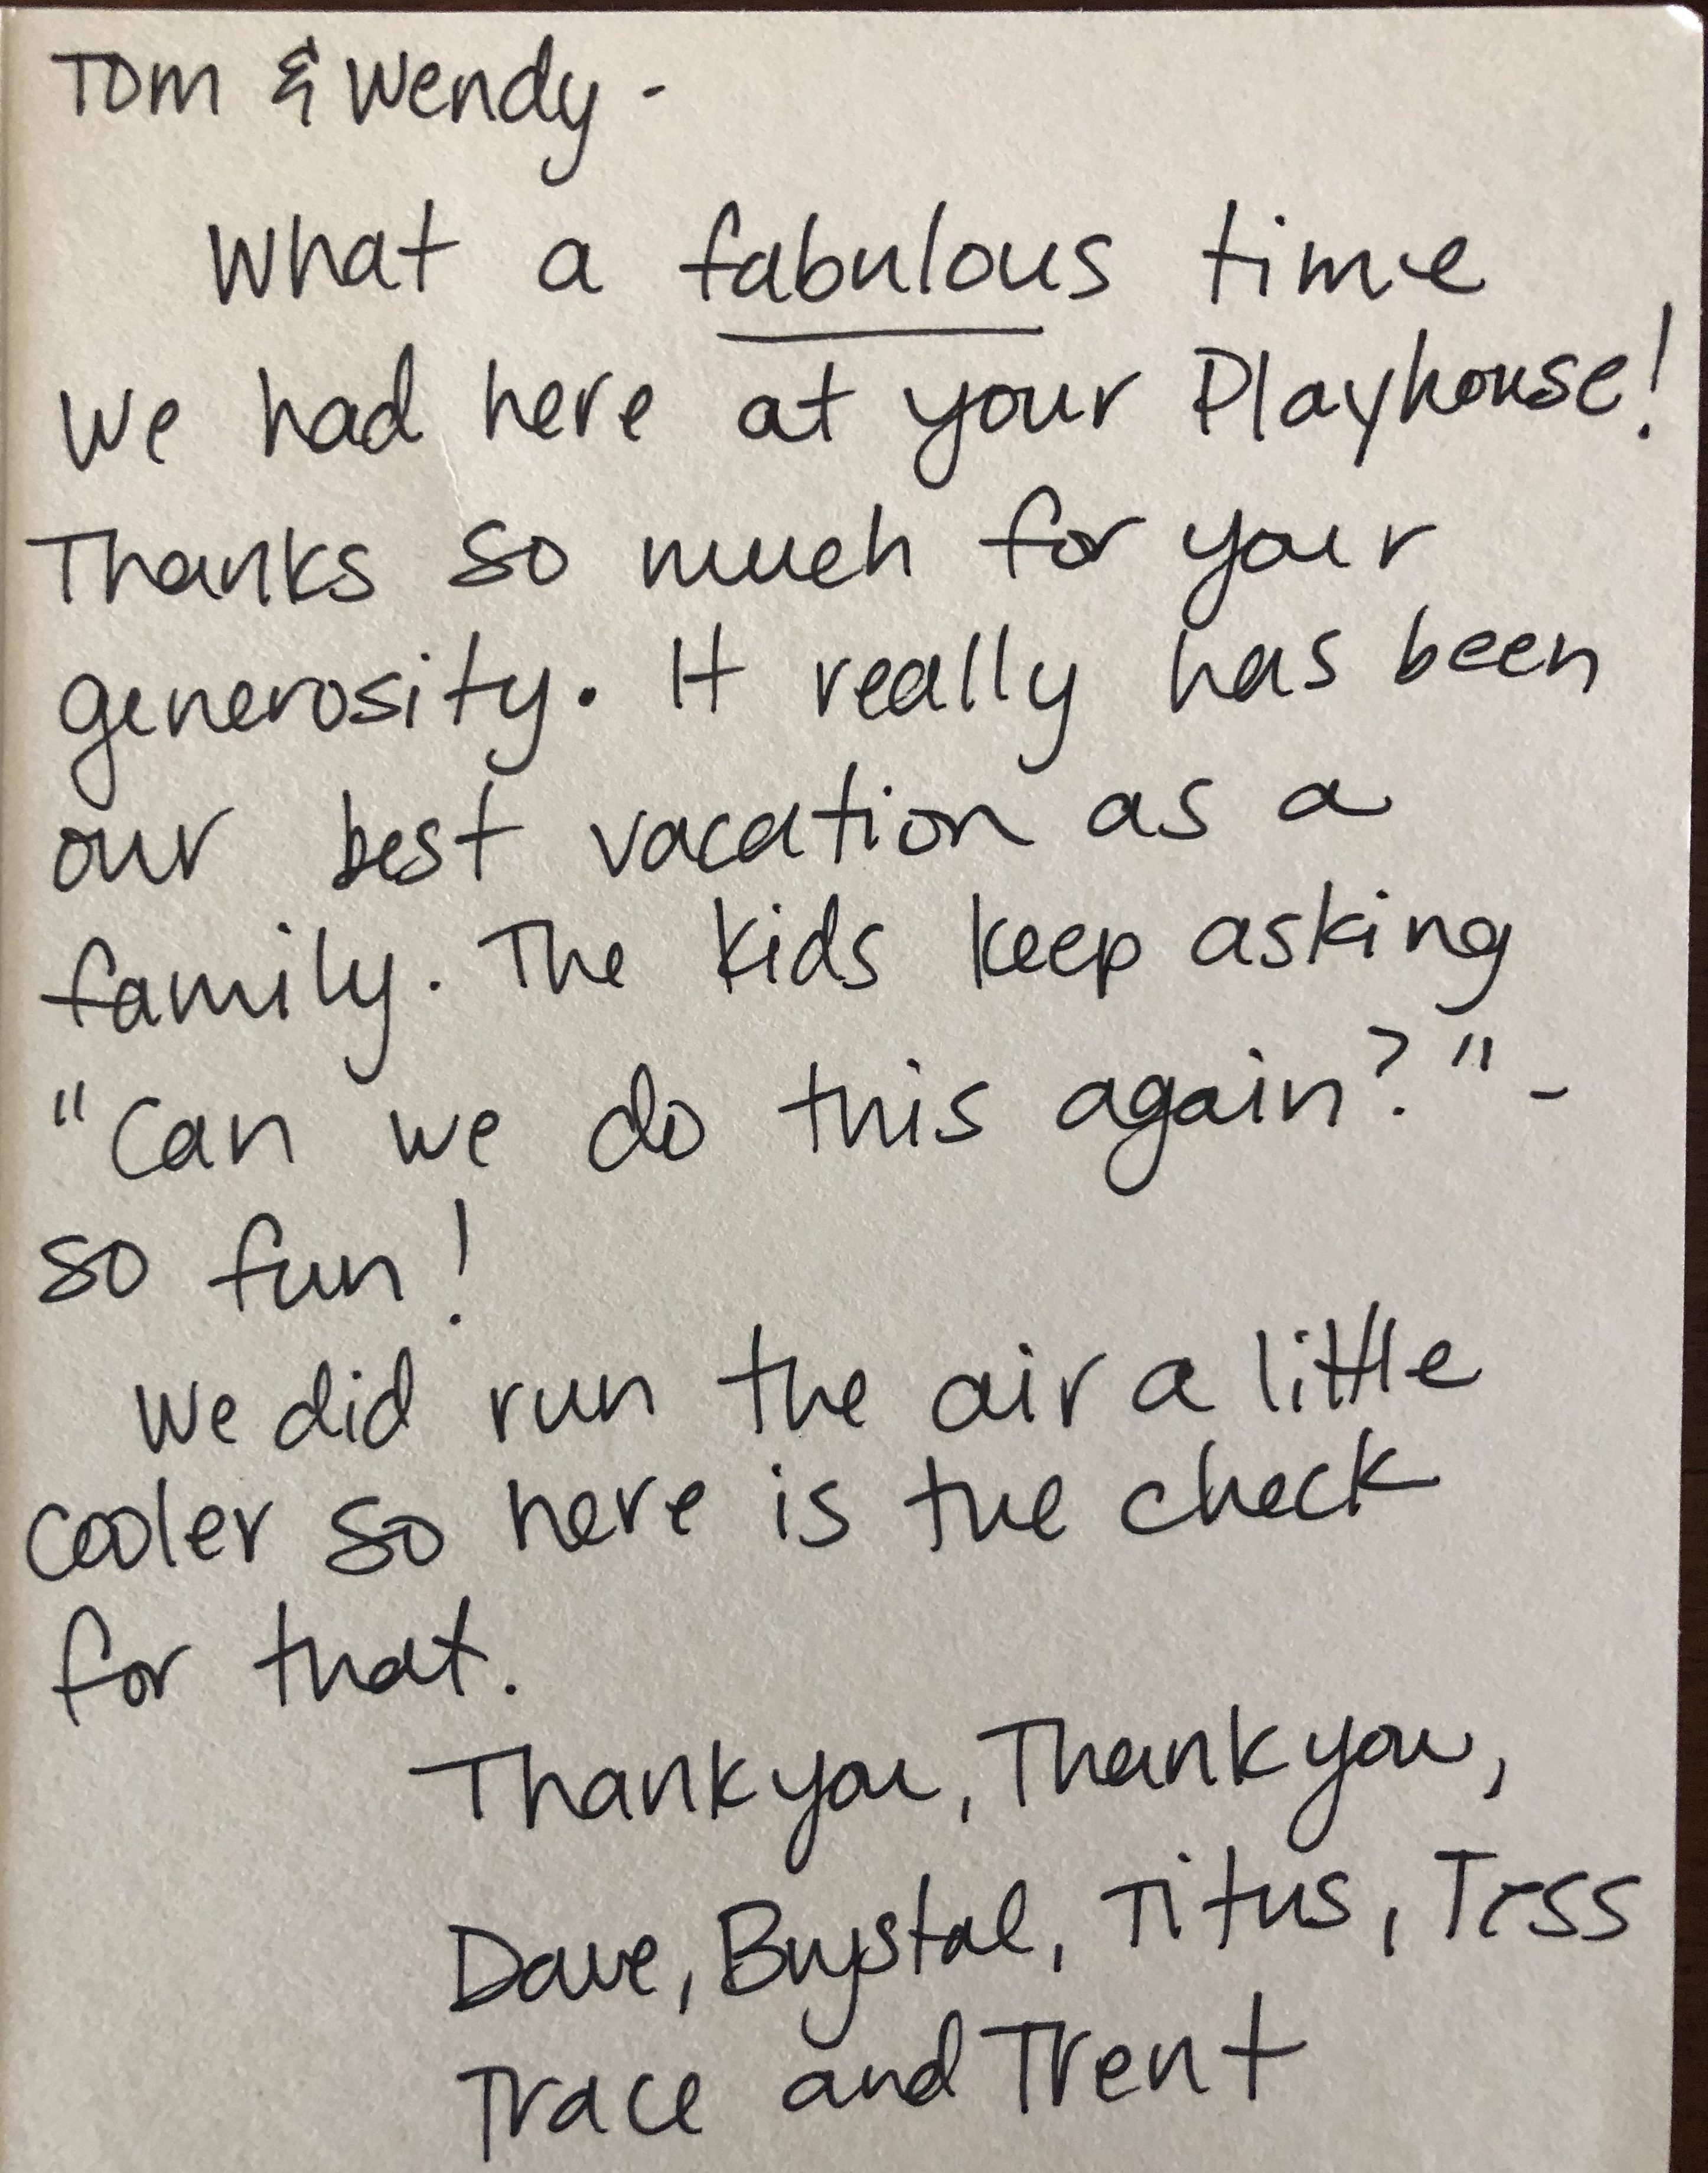 Tom & Wendy -
What a fabulous time
we had here at your Playhouse!
Thanks so much for your
generosity. It really has been
our best vacation as a
family. The kids keep asking
"Can we do this again?" -
so fun!
We did run the air a little
cooler so here is the check
for that.
Thank you, Thank you,
Dave, Brystal, Titus, Tess
Trace and Trent